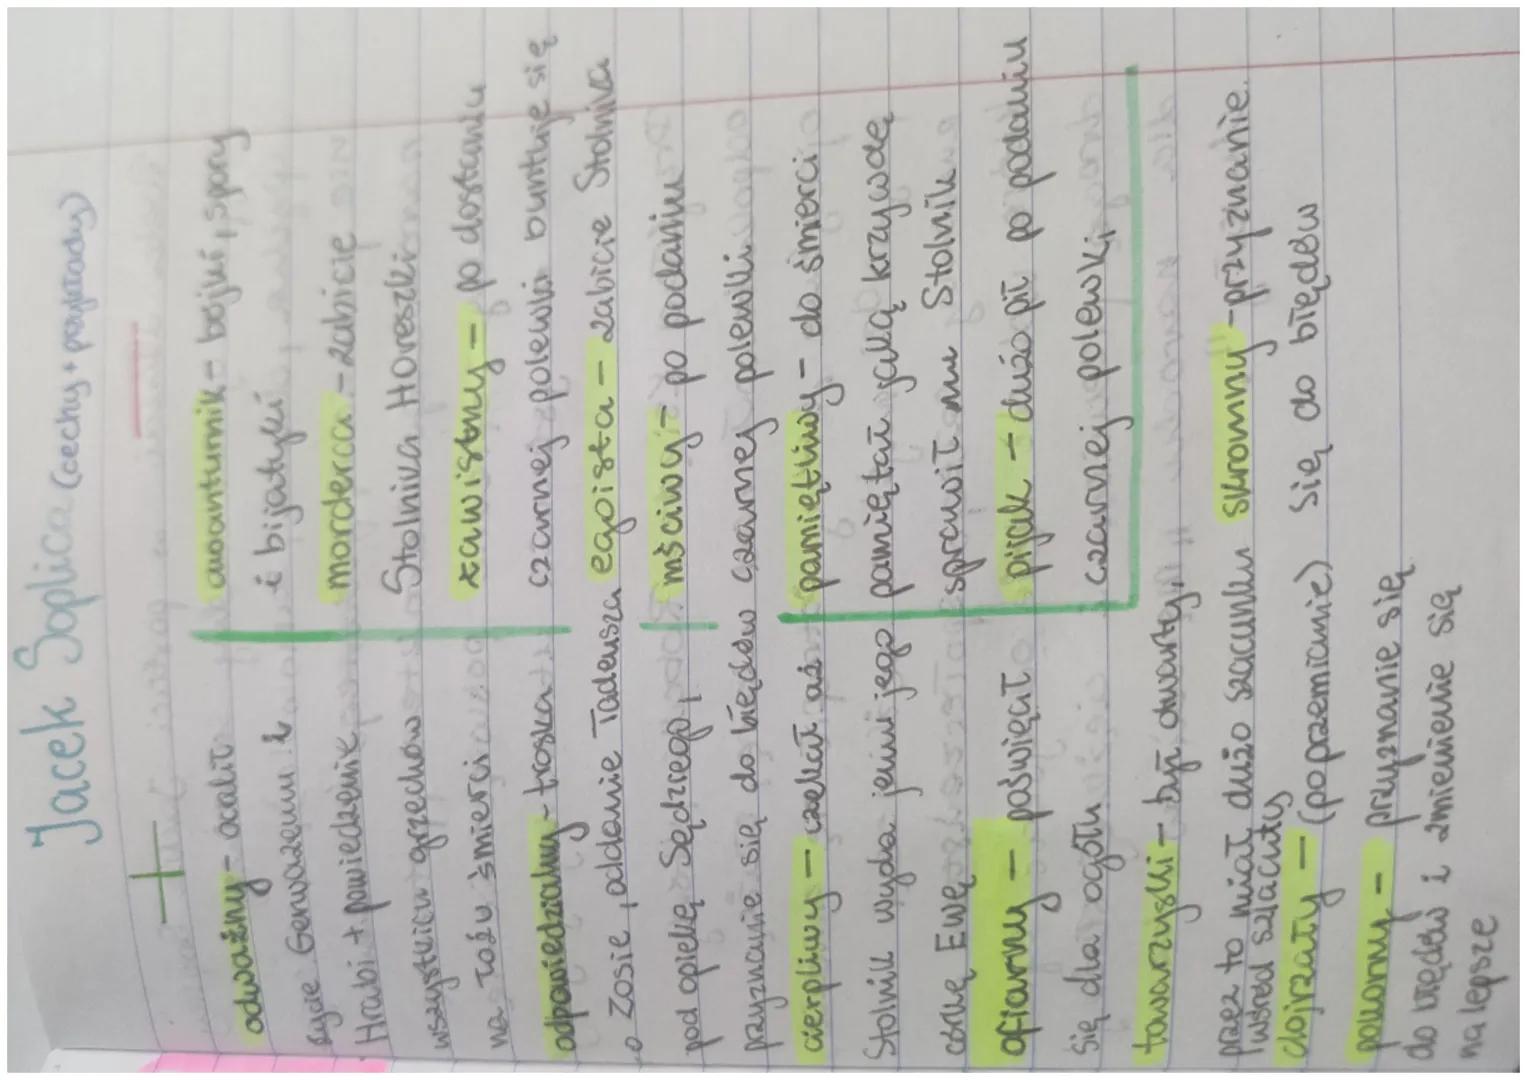 Jacek Soplica (cechy + przykłady)
+
odważny - ocalił
życie Gerwazemu i
Hrabi + powiedzenie
wszystkich grzechów
na łożu śmierci
odpowiedzialny - troska
o Zosię, oddanie Tadeusza
pod opiekę Sędziego,
przyznanie się do błędów
cierpliwy - czekał aż
Stolnik wyda jemu jego
córkę Ewę
ofiarny - poświęcił
się dla ogółu
towarzyski - był otwarty,
przez to miał dużo szacunku
wśród szlachty
dojrzały - (po przemianie)
pokorny - przyznanie się
do błędów i zmienienie się
na lepsze
-
awanturnik - bójki, spory
i bijatyki
morderca - zabicie
Stolnika Horeszki
zawistny - po dostaniu
czarnej polewki buntuje się
egoista - zabicie Stolnika
mściwy - po podaniu
czarnej polewki
pamiętliwy - do śmierci
pamiętał jaką krzywdę
sprawił mu Stolnik
pijak - dużo pił po podaniu
czarnej polewki
skromny - przyznanie
się do błędów